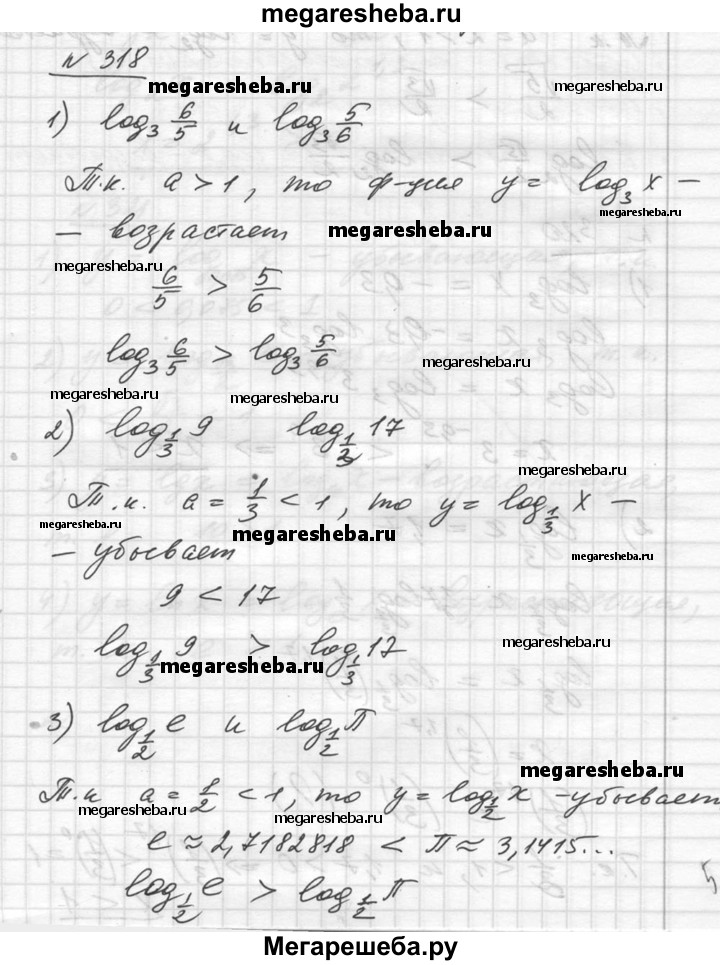 megaresheba.ru
N 318
megaresheba.ru
megaresheba.ru
1) log₃ 6/5 и log₃ 5/6
Т.к. a > 1, то ф-ция y = log₃ x –
megaresheba.ru
– возрастает
megaresheba.ru
megaresheba.ru
6/5 > 5/6
log₃ 6/5 > log₃ 5/6
megaresheba.ru
megaresheba.ru
megaresheba.ru
2) log_{1/3} 9 log_{1/3} 17
megaresheba.ru
Т.к. a = 1/3 < 1, то y = log_{1/3} x –
megaresheba.ru
megaresheba.ru
– убывает
megaresheba.ru
9 < 17
log_{1/3} 9 > log_{1/3} 17
megaresheba.ru
megaresheba.ru
3) log_{1/2} e и log_{1/2} π
megaresheba.ru
Т.к a = 1/2 < 1, то y = log_{1/2} x – убывает
megaresheba.ru
megaresheba.ru
e ≈ 2,7182818 < π ≈ 3,1415...
log_{1/2} e > log_{1/2} π
Мегарешеба.ру